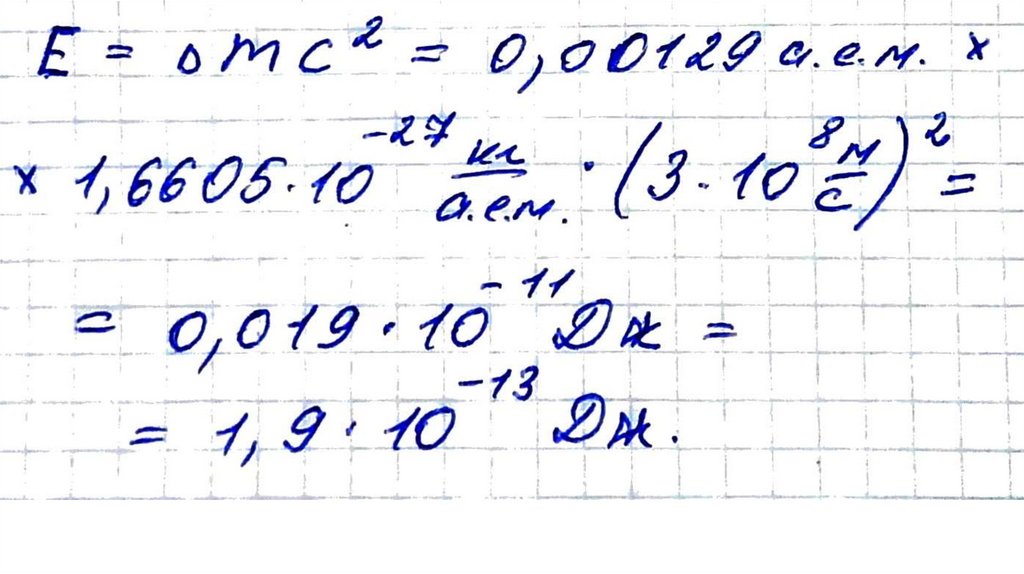 E = Δmc² = 0,00129 а.е.м. ×
× 1,6605·10⁻²⁷ кг/а.е.м. · (3·10⁸ м/с)² =
= 0,019·10⁻¹¹ Дж =
= 1,9·10⁻¹³ Дж.